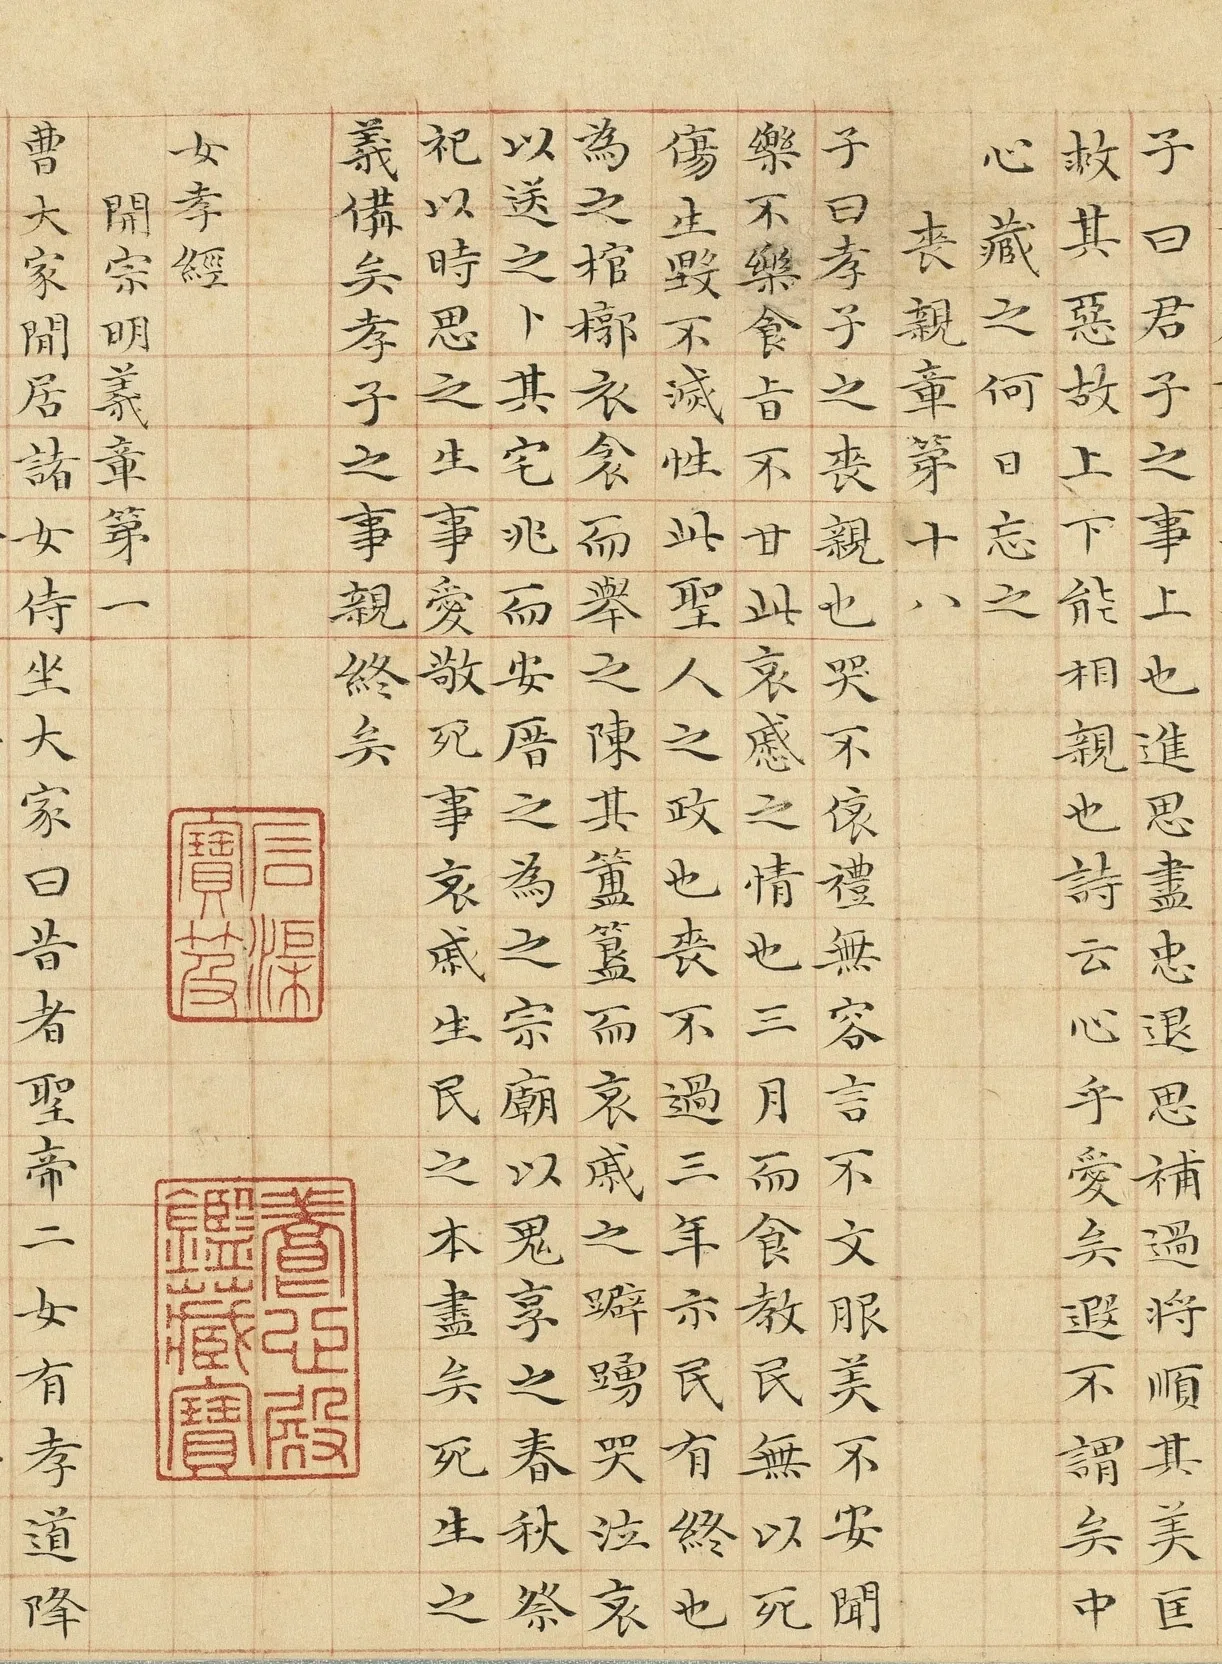 子曰君子之事上也進思盡忠退思補過將順其美匡
救其惡故上下能相親也詩云心乎愛矣遐不謂矣中
心藏之何日忘之
喪親章第十八
子曰孝子之喪親也哭不偯禮無容言不文服美不安聞
樂不樂食旨不甘此哀慼之情也三月而食教民無以死
傷生毀不滅性此聖人之政也喪不過三年示民有終也
為之棺槨衣衾而舉之陳其簠簋而哀戚之躃踴哭泣哀
以送之卜其宅兆而安厝之為之宗廟以鬼享之春秋祭
祀以時思之生事愛敬死事哀戚生民之本盡矣死生之
義備矣孝子之事親終矣
女孝經
開宗明義章第一
曹大家閒居諸女侍坐大家曰昔者聖帝二女有孝道降
石渠
寶笈
養心殿
鑑藏寶